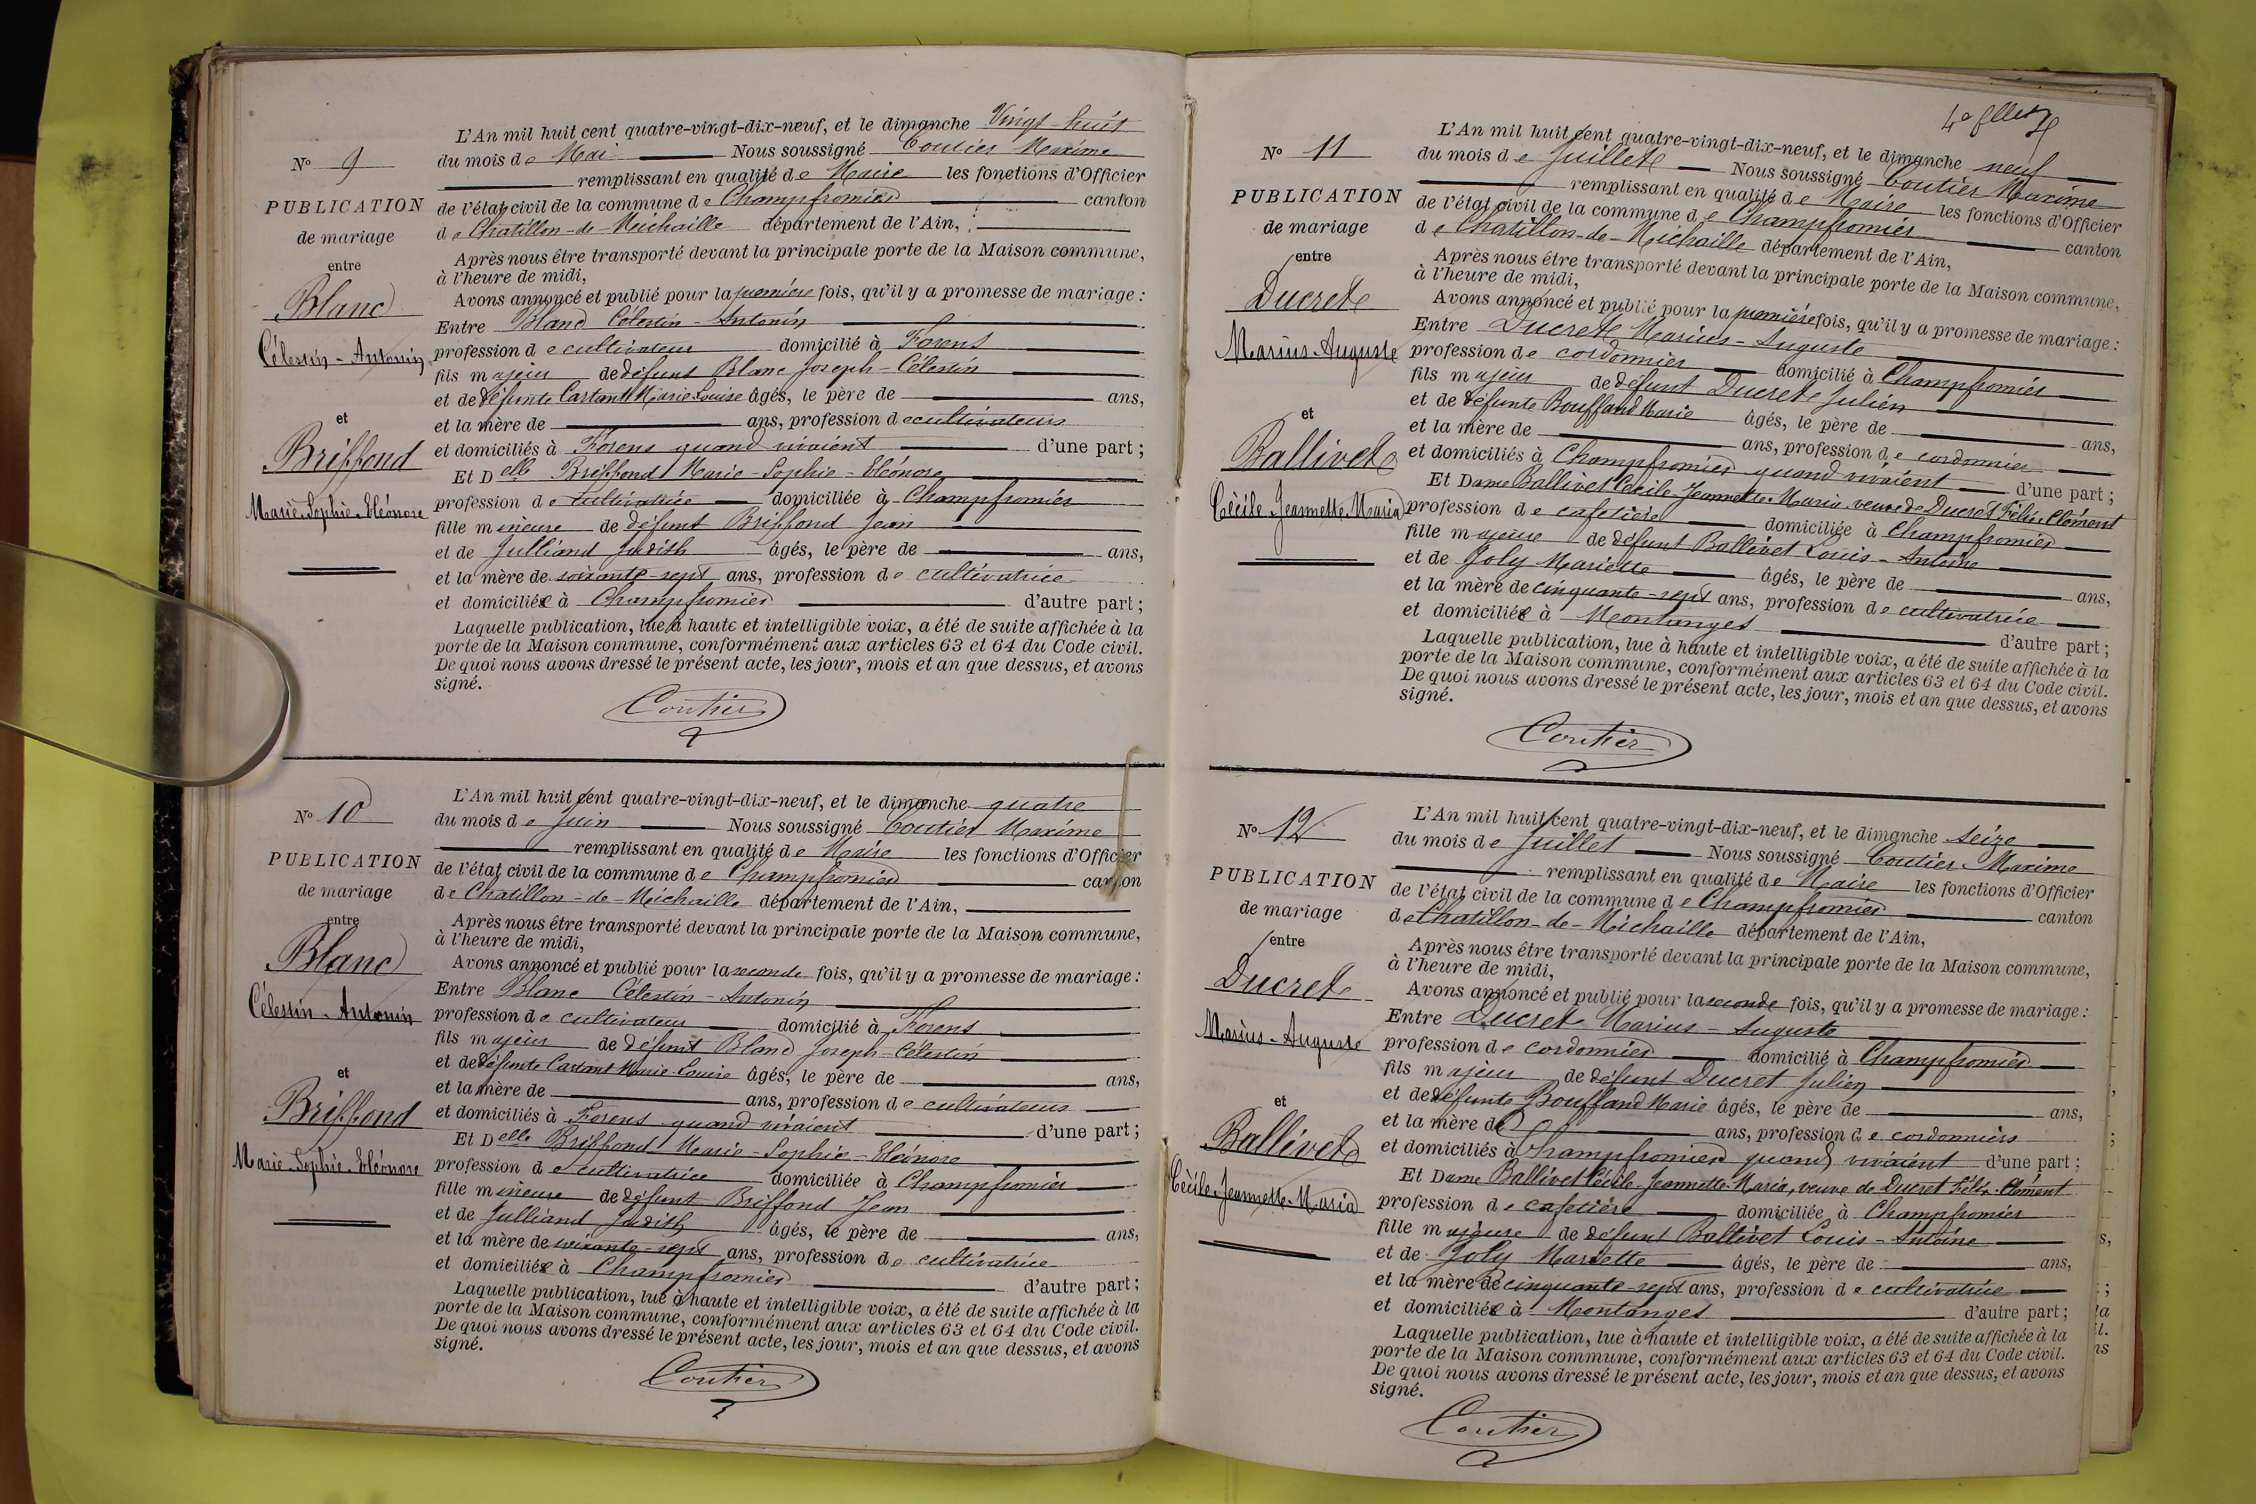 L'An mil huit cent quatre-vingt-dix-neuf, et le dimanche Vingt-huit
N° 9
du mois de Mai Nous soussigné Coutier Maxime
remplissant en qualité de Maire les fonctions d'Officier
PUBLICATION
de mariage
entre
Blanc
Célestin-Antonin
et
Briffond
Marie-Sophie-Eléonore
de l'état civil de la commune de Champfromier canton
de Chatillon-de-Michaille département de l'Ain,
Après nous être transporté devant la principale porte de la Maison commune,
à l'heure de midi,
Avons annoncé et publié pour la première fois, qu'il y a promesse de mariage :
Entre Blanc Célestin-Antonin
profession de cultivateur domicilié à Forens
fils majeur de défunt Blanc Joseph-Célestin
et de défunte Cartant Marie Louise âgés, le père de ans,
et la mère de ans, profession de cultivateurs
et domiciliés à Forens quand vivaient d'une part ;
Et Delle Briffond Marie-Sophie-Eléonore
profession de cultivatrice domiciliée à Champfromier
fille mineure de défunt Briffond Jean
et de Julliand Judith âgés, le père de ans,
et la mère de soixante-sept ans, profession de cultivatrice
et domiciliée à Champfromier d'autre part ;
Laquelle publication, lue à haute et intelligible voix, a été de suite affichée à la
porte de la Maison commune, conformément aux articles 63 et 64 du Code civil.
De quoi nous avons dressé le présent acte, les jour, mois et an que dessus, et avons
signé.
Coutier
L'An mil huit cent quatre-vingt-dix-neuf, et le dimanche quatre
N° 10
du mois de Juin Nous soussigné Coutier Maxime
remplissant en qualité de Maire les fonctions d'Officier
PUBLICATION
de mariage
entre
Blanc
Célestin-Antonin
et
Briffond
Marie-Sophie-Eléonore
de l'état civil de la commune de Champfromier canton
de Chatillon-de-Michaille département de l'Ain,
Après nous être transporté devant la principale porte de la Maison commune,
à l'heure de midi,
Avons annoncé et publié pour la seconde fois, qu'il y a promesse de mariage :
Entre Blanc Célestin-Antonin
profession de cultivateur domicilié à Forens
fils majeur de défunt Blanc Joseph-Célestin
et de défunte Cartant Marie-Louise âgés, le père de ans,
et la mère de ans, profession de cultivateurs
et domiciliés à Forens quand vivaient d'une part ;
Et Delle Briffond Marie-Sophie-Eléonore
profession de cultivatrice domiciliée à Champfromier
fille mineure de défunt Briffond Jean
et de Julliand Judith âgés, le père de ans,
et la mère de soixante-sept ans, profession de cultivatrice
et domiciliée à Champfromier d'autre part ;
Laquelle publication, lue à haute et intelligible voix, a été de suite affichée à la
porte de la Maison commune, conformément aux articles 63 et 64 du Code civil.
De quoi nous avons dressé le présent acte, les jour, mois et an que dessus, et avons
signé.
Coutier
L'An mil huit cent quatre-vingt-dix-neuf, et le dimanche neuf
N° 11
du mois de Juillet Nous soussigné Coutier Maxime
remplissant en qualité de Maire les fonctions d'Officier
PUBLICATION
de mariage
entre
Ducret
Marius-Auguste
et
Ballivet
Cécile-Jeannette-Maria
de l'état civil de la commune de Champfromier canton
de Chatillon-de-Michaille département de l'Ain,
Après nous être transporté devant la principale porte de la Maison commune,
à l'heure de midi,
Avons annoncé et publié pour la première fois, qu'il y a promesse de mariage :
Entre Ducret Marius-Auguste
profession de cordonnier domicilié à Champfromier
fils majeur de défunt Ducret Julien
et de défunte Bouffand Marie âgés, le père de ans,
et la mère de ans, profession de cordonnier
et domiciliés à Champfromier quand vivaient d'une part ;
Et Dame Ballivet Cécile-Jeannette-Maria veuve de Ducret Félix-Clément
profession de cafetière domiciliée à Champfromier
fille majeure de défunt Ballivet Louis-Antoine
et de Joly Mariette âgés, le père de ans,
et la mère de cinquante-sept ans, profession de cultivatrice
et domiciliée à Montanges d'autre part ;
Laquelle publication, lue à haute et intelligible voix, a été de suite affichée à la
porte de la Maison commune, conformément aux articles 63 et 64 du Code civil.
De quoi nous avons dressé le présent acte, les jour, mois et an que dessus, et avons
signé.
Coutier
L'An mil huit cent quatre-vingt-dix-neuf, et le dimanche seize
N° 12
du mois de Juillet Nous soussigné Coutier Maxime
remplissant en qualité de Maire les fonctions d'Officier
PUBLICATION
de mariage
entre
Ducret
Marius-Auguste
et
Ballivet
Cécile-Jeannette-Maria
de l'état civil de la commune de Champfromier canton
de Chatillon-de-Michaille département de l'Ain,
Après nous être transporté devant la principale porte de la Maison commune,
à l'heure de midi,
Avons annoncé et publié pour la seconde fois, qu'il y a promesse de mariage :
Entre Ducret Marius-Auguste
profession de cordonnier domicilié à Champfromier
fils majeur de défunt Ducret Julien
et de défunte Bouffand Marie âgés, le père de ans,
et la mère de ans, profession de cordonniers
et domiciliés à Champfromier quand vivaient d'une part ;
Et Dame Ballivet Cécile-Jeannette-Maria, veuve de Ducret Félix-Clément
profession de cafetière domiciliée à Champfromier
fille majeure de défunt Ballivet Louis-Antoine
et de Joly Mariette âgés, le père de ans,
et la mère de cinquante-sept ans, profession de cultivatrice
et domiciliée à Montanges d'autre part ;
Laquelle publication, lue à haute et intelligible voix, a été de suite affichée à la
porte de la Maison commune, conformément aux articles 63 et 64 du Code civil.
De quoi nous avons dressé le présent acte, les jour, mois et an que dessus, et avons
signé.
Coutier